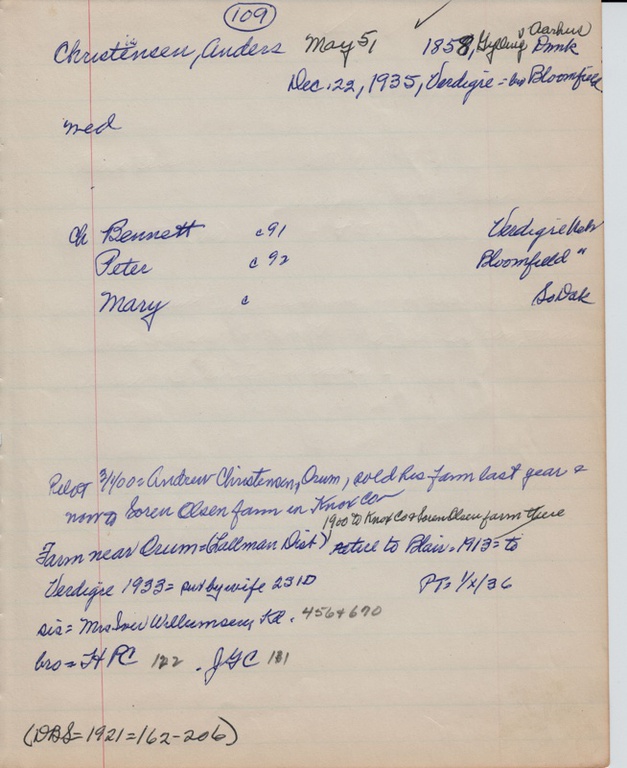 109
Christensen, Anders May 5, 1858, Aarhus Dmnk
Dec. 22, 1935, Verdigre = bu Bloomfield
med
ch Bennett c 91 Verdigre Neb
Peter c 92 Bloomfield "
Mary c So Dak
Pilot 3/1/00 = Andrew Christensen, Orum, sold his farm last year &
now Soren Olsen farm in Knox Co
1900 to Knox Co & Soren Olsen farm there
Farm near Orum = (Dist) retire to Blair, 1913 = to
Verdigre 1933 = sur by wife 2S 1D PT = 1/x/36
sis = Mrs Iver Willumsen, 456 & 690
bro = H PC 122 . JGC 131
(DBS = 1921 = 162-206)